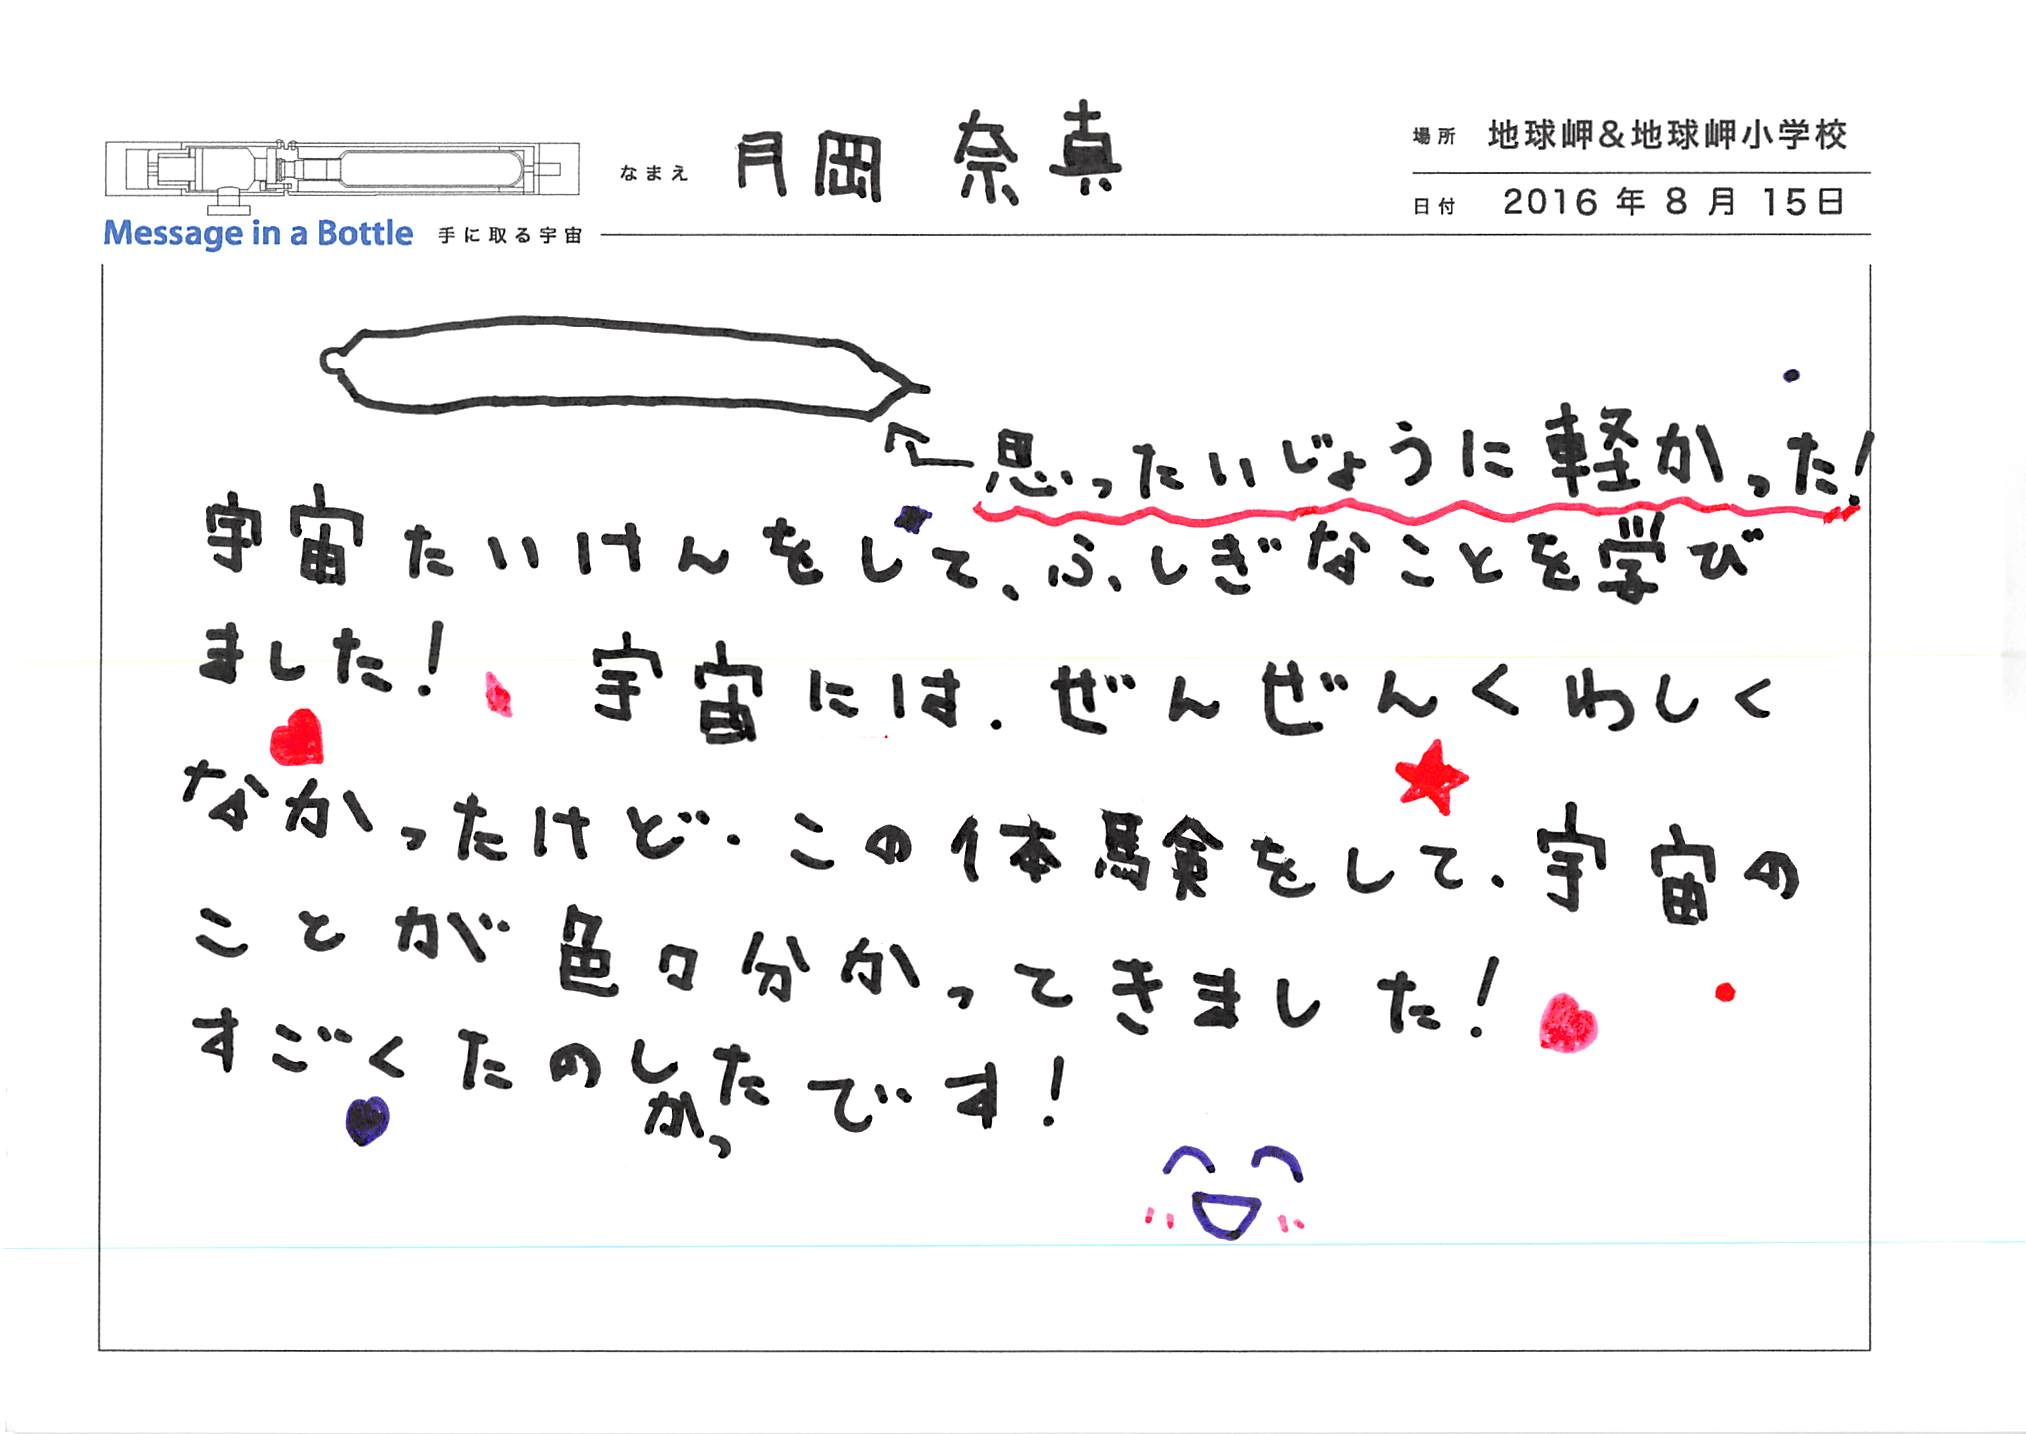 なまえ 月岡 奈真
場所 地球岬&地球岬小学校
日付 2016 年 8 月 15日
Message in a Bottle 手に取る宇宙
思ったいじょうに軽かった!
宇宙たいけんをして、ふしぎなことを学び
ました! 宇宙には、ぜんぜんくわしく
なかったけど、この体験をして、宇宙の
ことが色々分かってきました!
すごくたのしかったです!